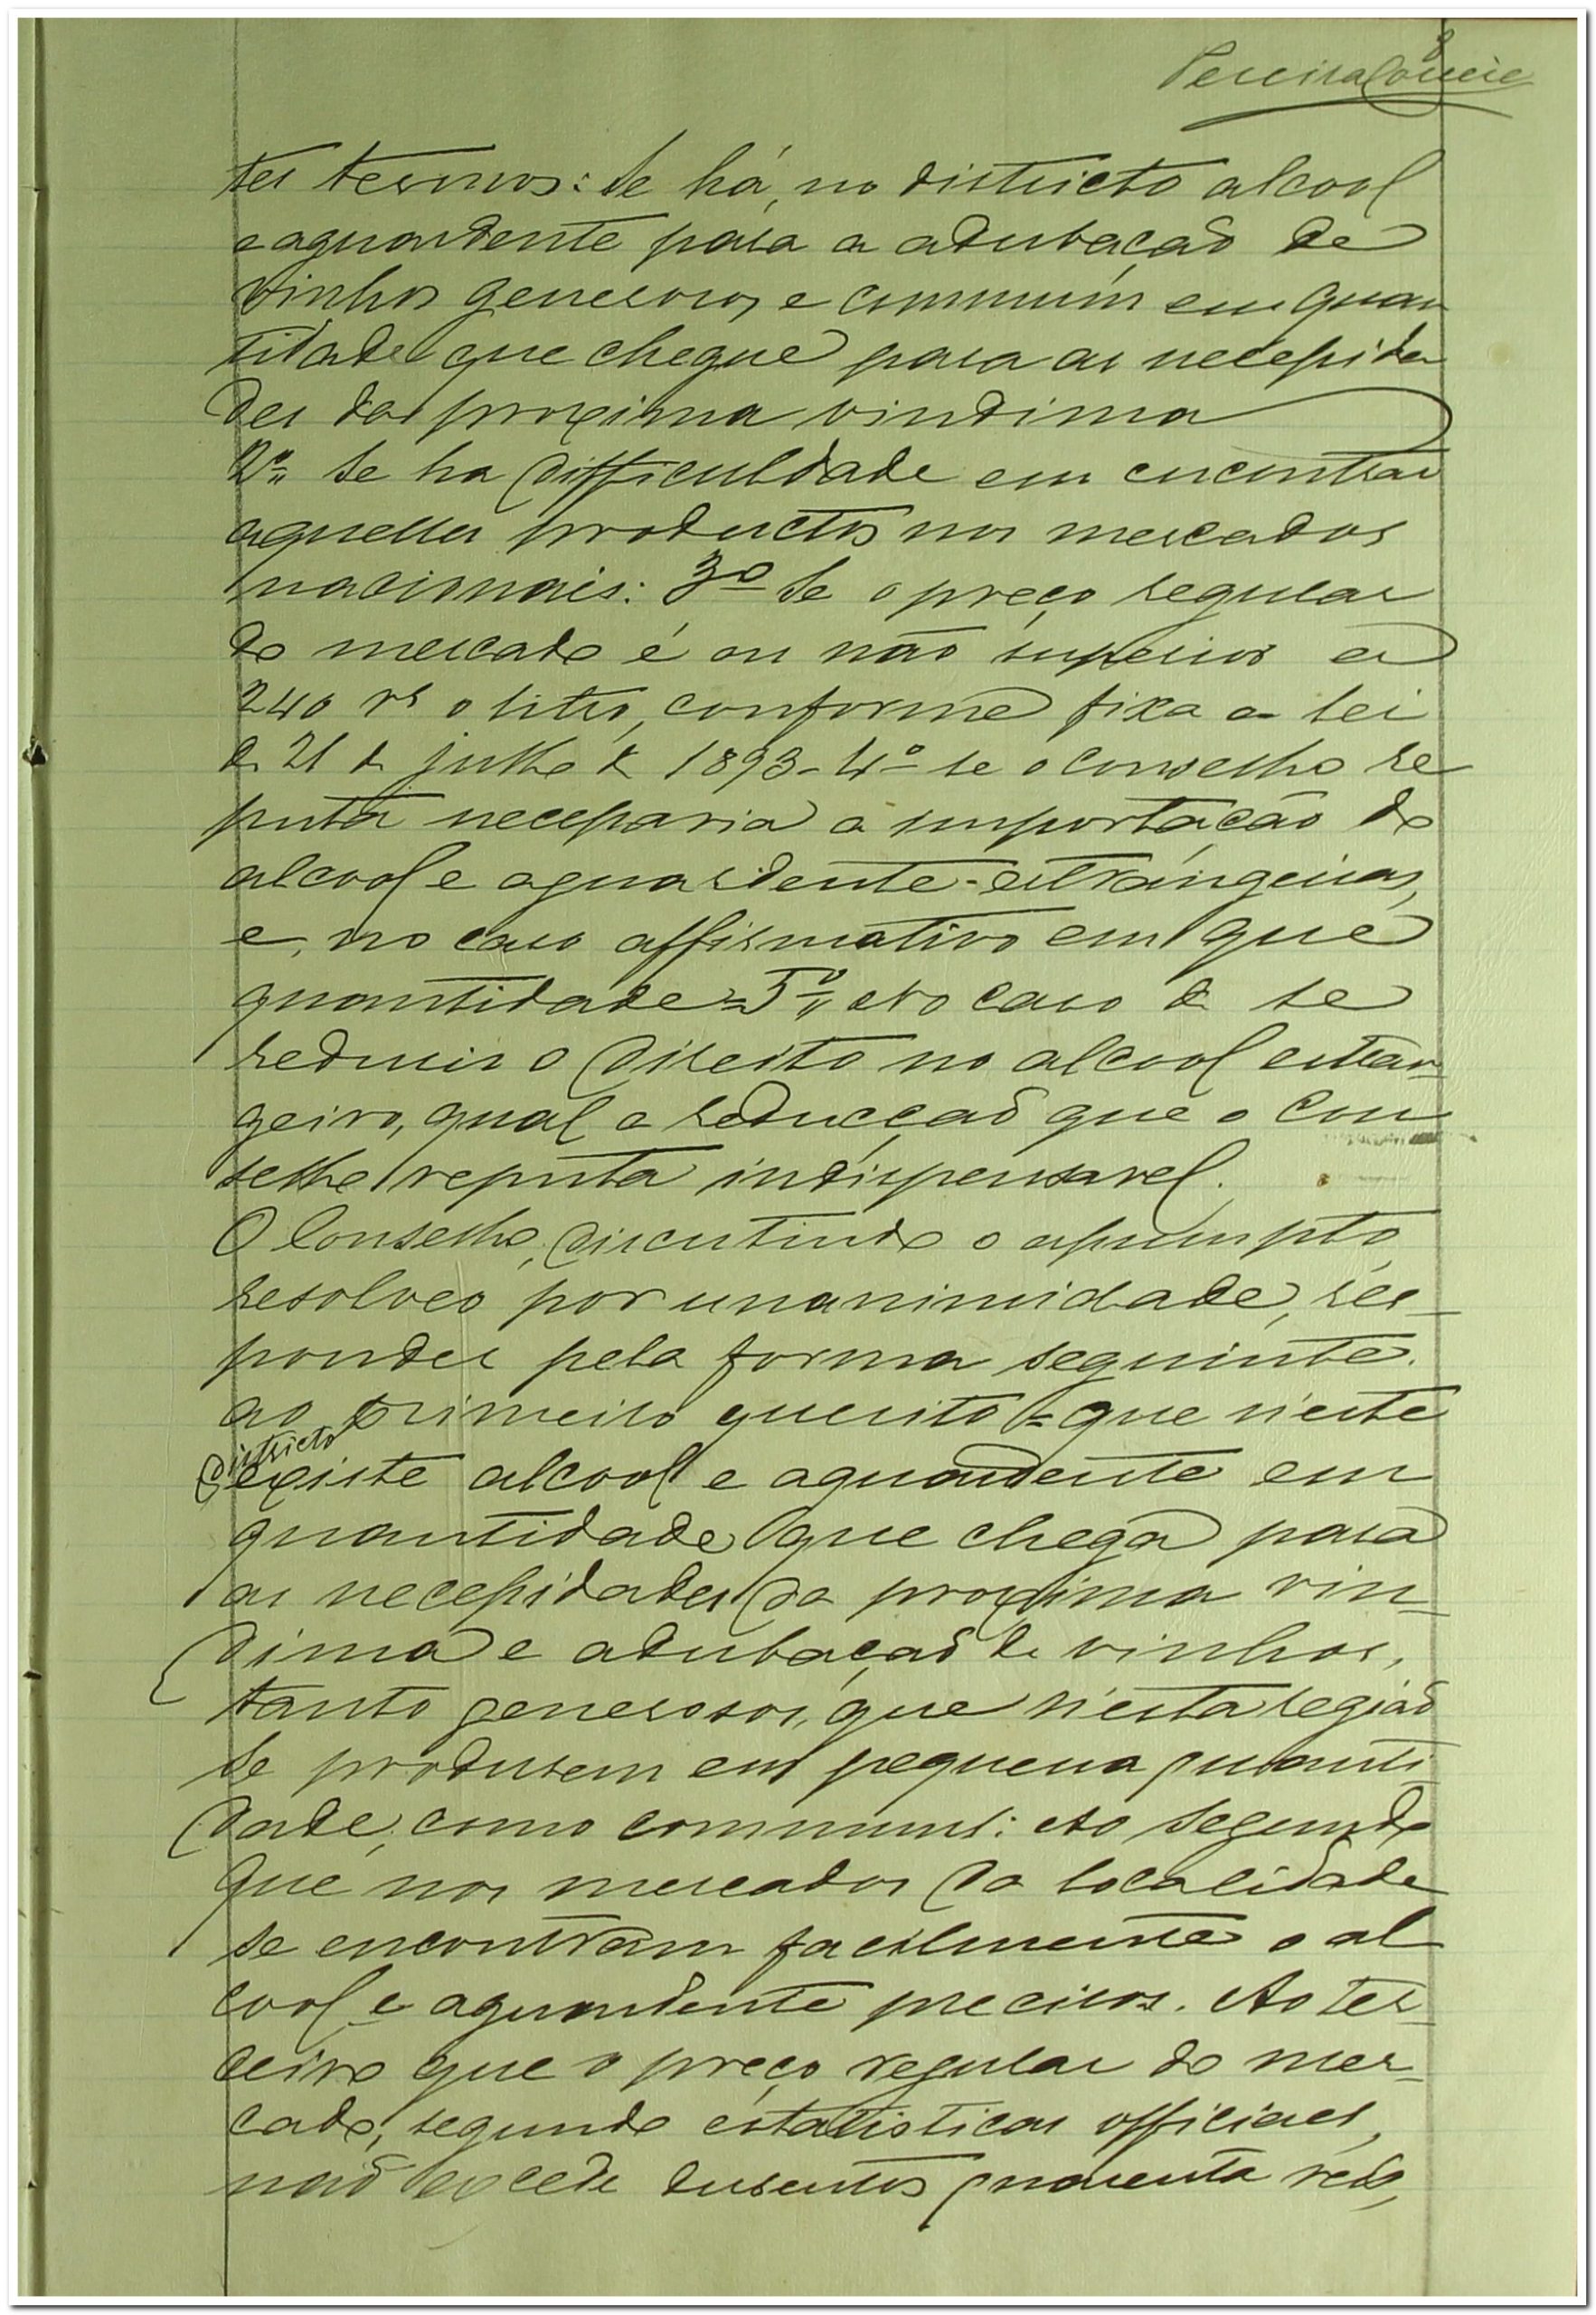 8
tes termos: se há, no districto alcool
e aguardente para a adubação de
vinhos generosos e communs em quan
tidade que chegue para as necessida
des da proxima vindima
2º se ha difficuldade em encontrar
aquelles productos nos mercados
nacionais: 3º se o preço regular
do mercado é ou não superior a
240 rs o litro, conforme fixa a lei
de 21 de julho de 1893 - 4º se o conselho re
puta necessaria a importação do
alcool e aguardente estrangeiras,
e, no caso affirmativo em que
quantidade = 5º No caso de se
reduzir o direito no alcool estran-
geiro, qual a reducção que o con
selho reputa indispensavel.
O Conselho, discutindo o assumpto
resolveo por unanimidade, res-
ponder pela forma seguinte.
ao primeiro quesito = que n'este
districto
existe alcool e aguardente em
quantidade que chega para
as necessidades da proxima vin-
dima e adubação de vinhos,
tanto generosos, que n'esta região
se produsem em pequena quanti
dade, como communs: Ao segundo
que nos mercados da localidade
se encontram facilmente o al
cool e aguardente precisos. Ao ter-
ceiro que o preço regular do mer-
cado, segundo estatisticas officiaes,
não excede dusentos quarenta reis,